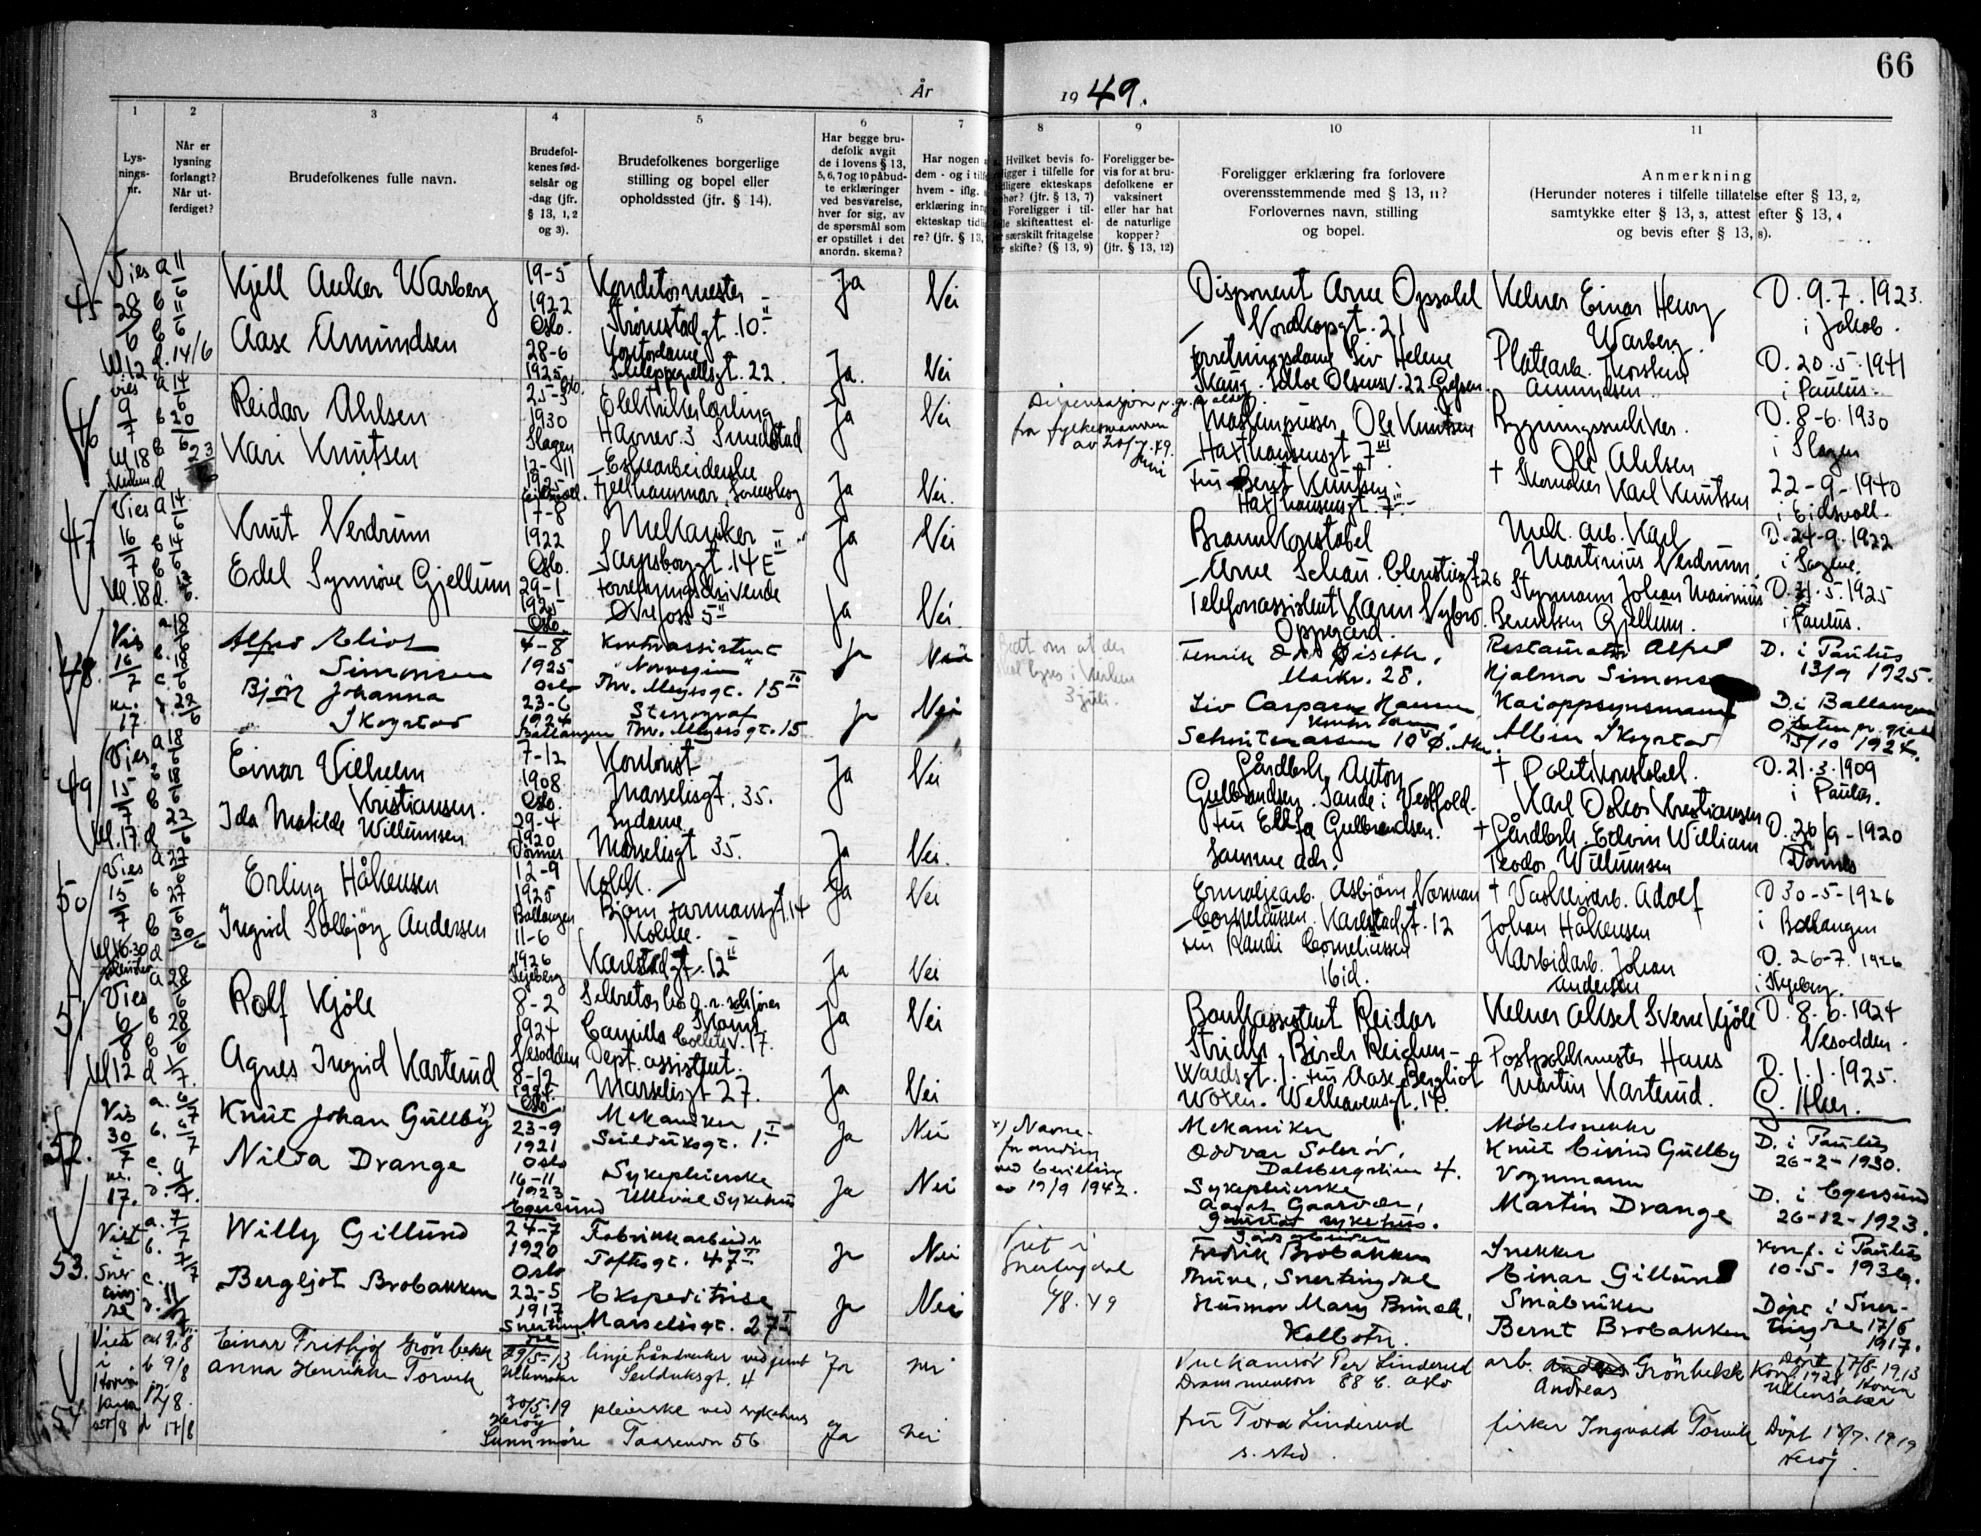 66
År
19 49.
1
2
3
4
5
6
7
8
9
10
11
Lys-
nings-
nr.
Når er
lysning
forlangt?
Når ut-
ferdiget?
Brudefolkenes fulle navn.
Brudefol-
kenes fød-
selsår og
-dag (jfr.
§ 13, 1, 2
og 3).
Brudefolkenes borgerlige
stilling og bopel eller
opholdssted (jfr. § 14).
Har begge bru-
defolk avgit
de i lovens § 13,
5, 6, 7 og 10 påbud-
te erklæringer
ved besvarelse,
hver for sig, av
de spørsmål som
er opstillet i det
anordn. skema?
Har nogen
dem - og i tilf
hvem - iflg.
erklæring inng
ekteskap tidlig
re? (jfr. § 13,
Hvilket bevis fo-
religger i tilfelle for
tidligere ekteskaps
ophør? (jfr. § 13, 7)
Foreligger i til-
felle skifteattest el-
ler særskilt fritagelse
for skifte? (§ 13, 9)
Foreligger be-
vis for at bru-
defolkene er
vaksinert
eller har hat
de naturlige
kopper?
(jfr. § 13, 12)
Foreligger erklæring fra forlovere
overensstemmende med § 13, 11?
Forlovernes navn, stilling
og bopel.
Anmerkning
(Herunder noteres i tilfelle tillatelse efter § 13, 2,
samtykke efter § 13, 3, attest efter § 13, 4
og bevis efter § 13, 8).
45
Vies 28/6 kl 12
a 11/6
b 11/6
d. 14/6
Kjell Anker Warberg
19-5
1922
Oslo.
Konditormester
Strömstadgt. 10 II
Ja
Nei
Disponent Arne Opsahl
Nordkapgt. 21
Kelner Einar Henry
Warberg.
D. 9.7.1923.
i Jakob.
Aase Amundsen
28-6
1925
Oslo.
Kontordame
Schleppegrellsgt. 22.
Ja.
Nei
Forretningsdame Liv Helene
Platearb. Thorstein
Amundsen.
D. 20.5.1941
i Paulus.
46
Vies 9/7 kl 18
a 14/6
b 20/6
d 23/6
Reidar Ahlsen
25-3
1930
Slagen
Elektrikerlærling
Havnev. 3 Smedstad
Ja
Nei
Dispensasjon p. gr. av alder
fra fylkesmannen
Maskinpusser Ole Knutsen
Haxthausensgt 7 III
Bygningssnekker
Ole Ahlsen
D. 8-6.1930
i Slagen
Kari Knutsen
12-11
1925
Eskearbeiderske
Fjellhammar, Lørenskog
Ja
Nei.
Fru Berit Knutsen
Haxthausensgt. 7 III
† Skomaker Karl Knutsen
22-9-1940
i Eidsvoll.
47
Vies 16/7 kl. 18
a 14/6
b 14/6
d.
Knut Verdrum
17-8
1922
Oslo.
Mekaniker
Sarpsborggt. 14 E II
Ja
Nei
Brannkonstabel
Arne Schau. Christiesgt 26
Mek. arb. Karl
Martinius Verdrum.
D. 24-9.1922
i Sagene.
Edel Synnöve Gjellum
29-1
1925
Oslo.
Forretningsdrivende
Øvrefoss 5 II
Ja
Nei.
Telefonassistent Karin Nybro.
Oppegård.
Styrmann Johan Marinius
Berentsen Gjellum.
D. 31.5.1925
i Paulus.
48.
Vies 16/7 kl. 17
d. 22/6
Alfred Eliot
Simonsen
4-8
1925
Oslo
Kontorassistent
"Norvegia"
Thv. Meyersgt. 15 II
Ja
Nei
Bedt om at det
3 juli.
Fenrik Odd Øiseth,
Maikr. 28.
Restauratør Alfred
Hjalmar Simonsen
D. i Paulus
13/9 1925.
Bjørg Johanna
Skogstad
23-6
1924
Ballangen
Stenograf
Thv. Meyersgt. 15
Ja
Nei
Liv Caspara Hansen
Kontordame.
Schultzeåsen 10 V. Ø. Aker.
Kaioppsynsmann
Albin Skogstad
D. i Ballangen
15/10 1924.
49
Vies 15/7 kl. 17.
a 18/6
d 22/6
Einar Vilhelm
Kristiansen.
7-12
1908
Oslo.
Kontorist
Marselisgt. 35.
Ja
Nei
Gårdbr. Anton
Gulbrandsen. Sande i Vestfold.
† Politikonstabel.
Karl Oskar Kristiansen
D. 21.3.1909
i Paulus.
Ida Matilde Willumsen
29-4
1920
Dønnes
Sydame
Marselisgt 35.
Ja
Nei.
Fru Ella Gulbrandsen.
Samme adr.
† Gårdbr. Edvin William
Teodor Willumsen
D. 26/9-1920
Dønnes
50
Vies 15/7 kl 16.30
a 27/6
b 27/6
d 30/6
Erling Håkensen
12-9
1925
Ballangen
Kokk.
Bjørn Farmannsgt. 14
Ja
Nei
Emaljearb. Asbjørn Norman
Corneliussen. Karlstadgt. 12
† Vaskeriarb. Adolf
Johan Håkensen
D 30-5-1926
i Ballangen
Ingrid Solbjörg Andersen
11-6
1926
Skjeberg
Kokke.
Karlstadgt. 12 II
Ja
Nei
Fru Randi Corneliussen
ibid.
Karbidarb. Johan
Andersen
D. 26-7.1926
i Skjeberg.
51
Vies 6/8 kl 12
a 28/6
b 28/6
d 1/7.
Rolf Kjöle
8-2
1924
Nesodden
Camilla Colletts v. 17.
Ja
Nei
Bankassistent Reidar
Kelner Aksel Sverre Kjöle
D. 8.6.1924
Nesodden.
Agnes Ingrid Karterud
8-12
1924.
Oslo
Dept. assistent.
Marselisgt 27.
Ja
Nei
Waldsgt. 1. Fru Aase Bergliot
Welhavensgt. 14.
Postpakkmester Hans
Martin Karterud.
D. 1.1.1925.
Ø. Aker.
52.
Vies 30/7 kl. 17.
a. 6/7
b. 6/7
c.
d. 9/7.
Knut Johan Gullby x)
23-9
1921
Oslo
Mekaniker
Seilduksgt. 1. I
Ja
Nei
x) Navne-
forandring
ved bevilling
av 19/9 1942.
Mekaniker
Oddvar Solerød,
Dalsbergstien 4.
Møbelsnekker
Knut Eivind Gullby
D. i Paulus
26-2-1930.
Nilsa Drange
16-11
1923
Egersund
Sykepleierske
Ullevål Sykehus
Ja
Nei
Sykepleierske
Aagot Gaarvær,
Gaustad sykehus.
Vognmann
Martin Drange
D. i Egersund
26-12-1923.
53.
Viet i Snertingdal
a. 7/7
b. 7/7
c.
d. 11/7
Willy Gillund
24-7
1920
Oslo
Fabrikkarbeider
Toftesgt. 47 II
Ja
Nei
Viet i
Snertingdal
6/8.49
Fredrik Brobakken
Thune, Snertingdal
Snekker
Einar Gillund
Konf. i Paulus
10-5-1936.
Bergljot Brobakken
22-5
1917
Snertingdal
Ekspeditrise
Marselisgt. 27 I
Ja
Nei
Husmor Mary Brinch,
Kolbotn.
Småbruker
Bernt Brobakken
Døpt i Snertingdal 17/6
1917.
54.
Viet i Hovin
a 9/8
b 9/8
12/8.
d 17/8
Einar Fritbjof Grönbekk
29/5-13
Ullensaker
linjehåndverker ved
Seilduksgt. 4
Ja
nei
Per Linderud
Drammensv 88 b. Oslo
arb. Grönbekk
Andreas
Døpt 17/8-1913
Konf. 1928 Hovin
Ullensaker
Anna Henrikke Torvik
30/5-19
Herøy
Sunnmøre
pleierske ved sykehus
Taasenvn 56
Ja
nei
fru Tora Linderud
s. sted
fisker Ingvald Torvik
Døpt 18/7.1919
Herøy.